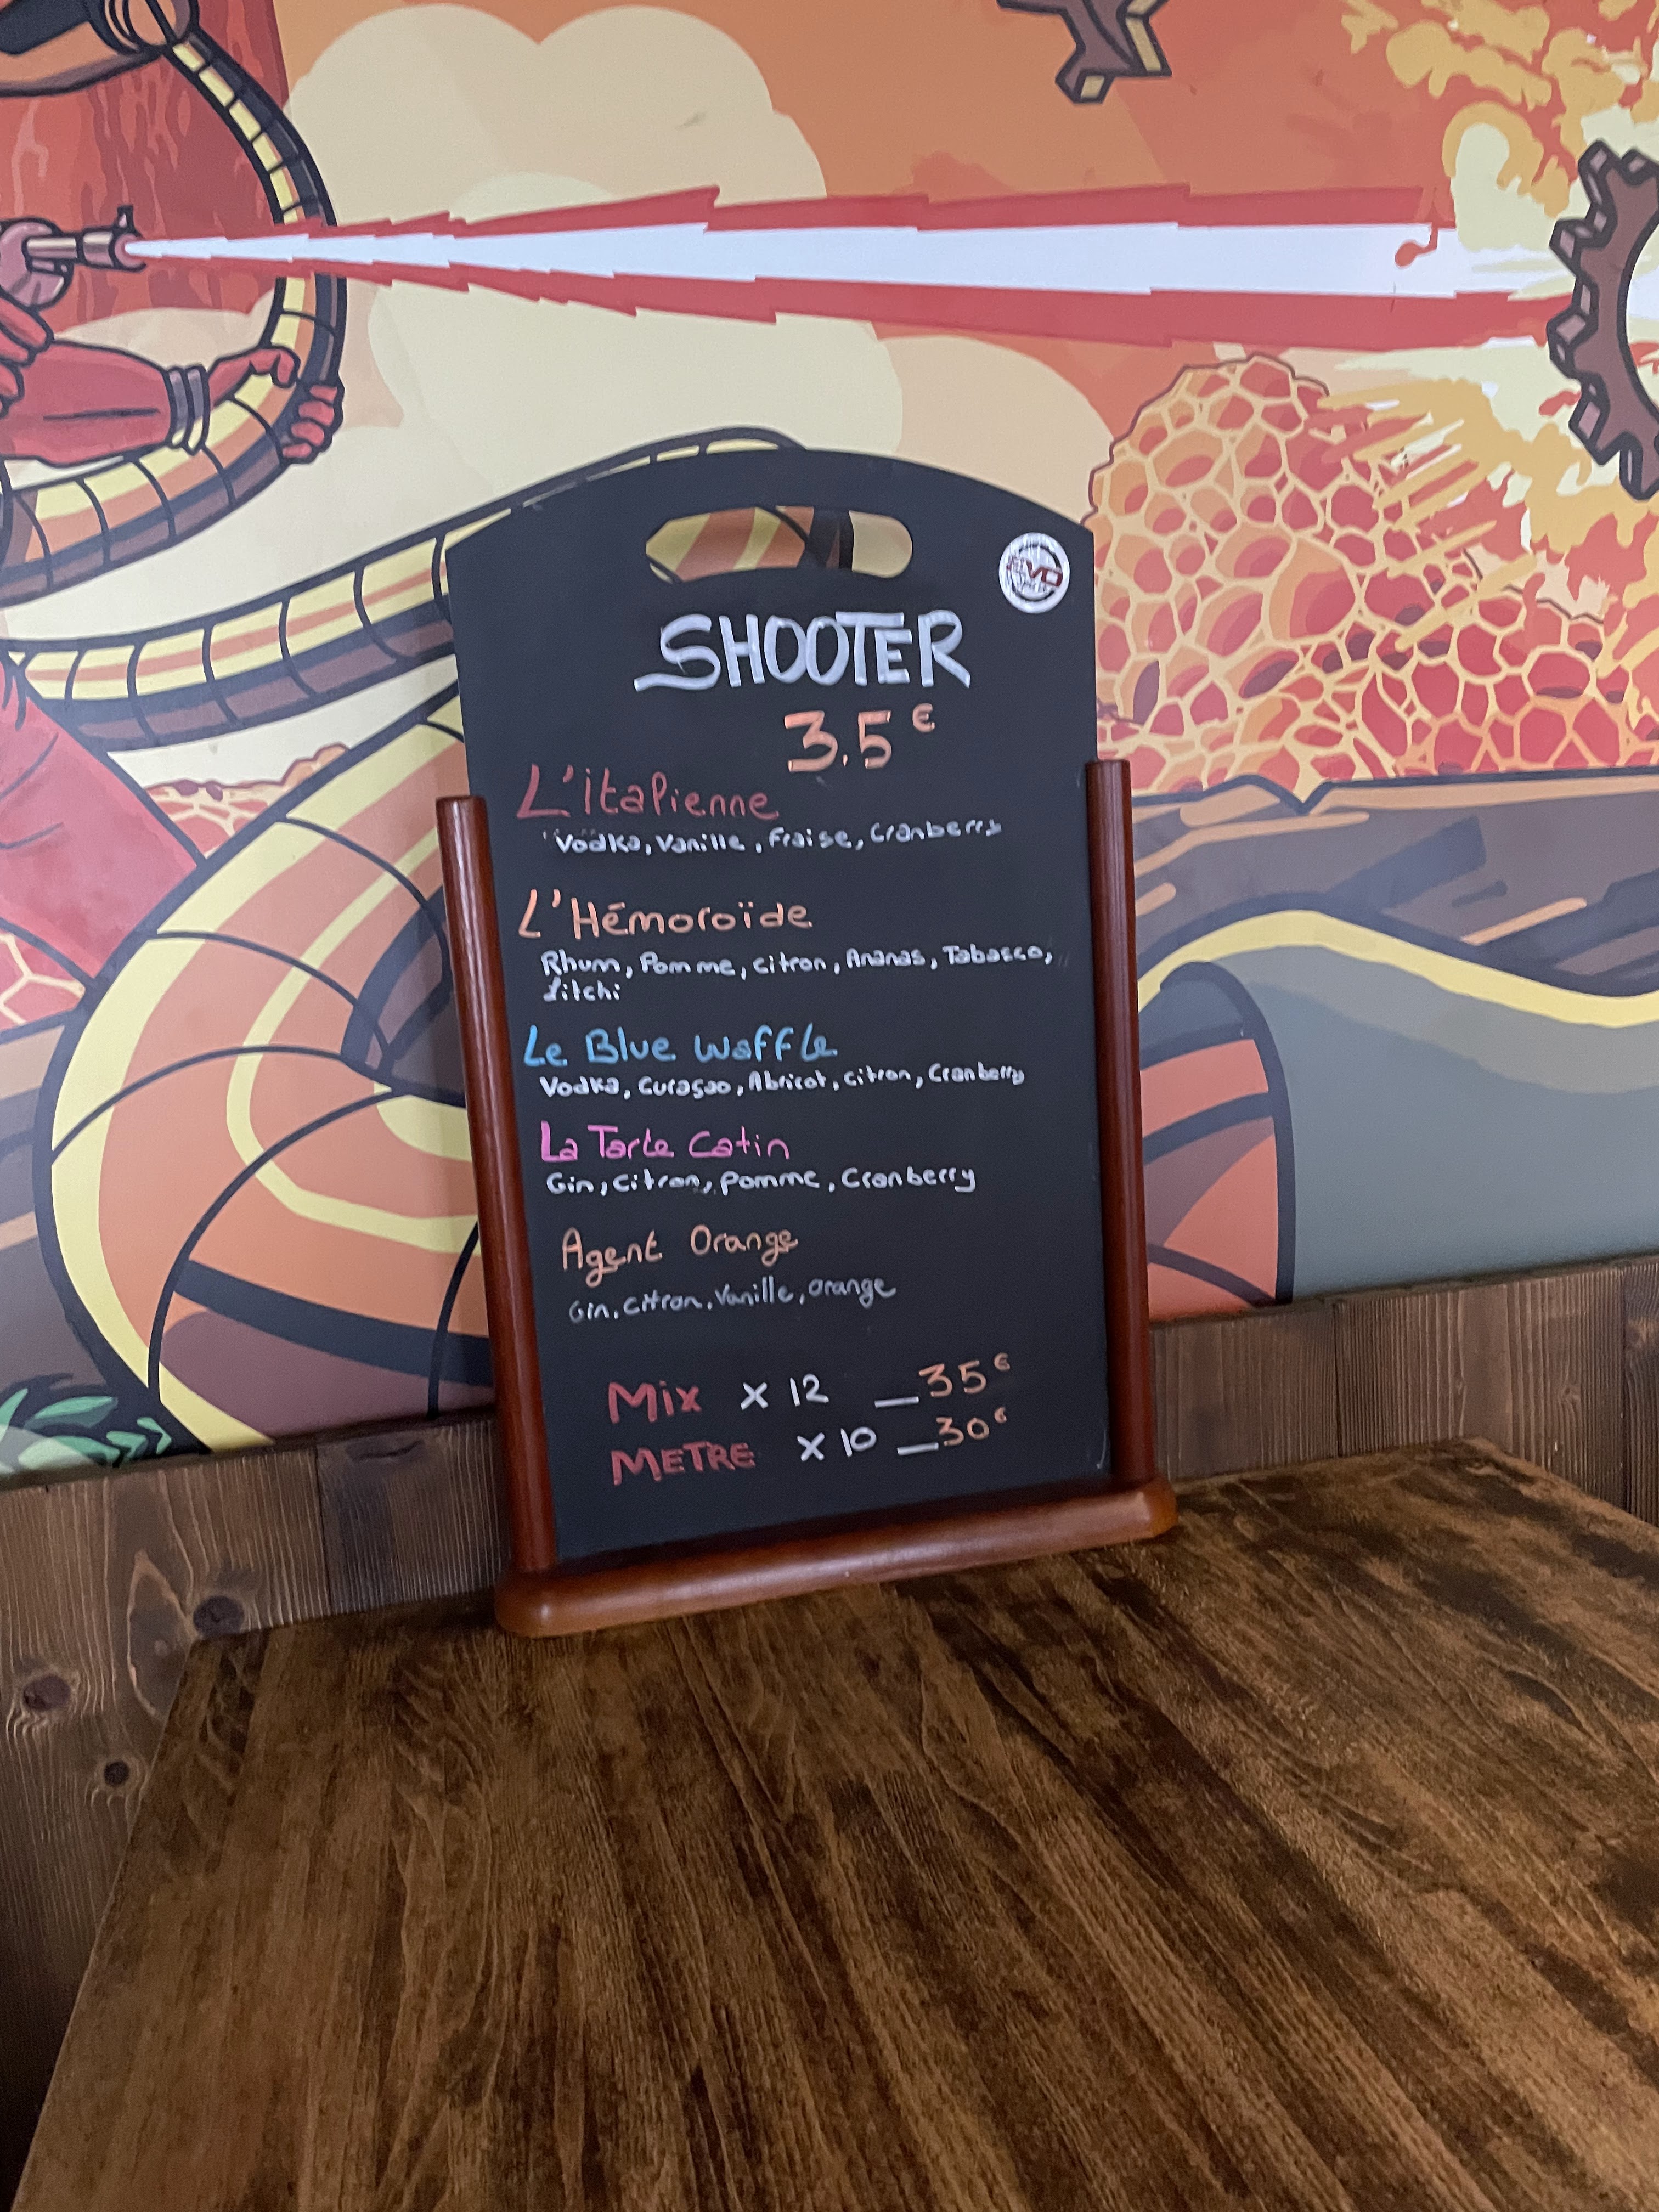 EVO
SHOOTER
3.5€
L'italienne
Vodka, Vanille, Fraise, Cranberry
L'Hémoroïde
Rhum, Pomme, citron, Ananas, Tabasco,
Litchi
Le Blue Waffle
Vodka, Curaçao, Abricot, citron, Cranberry
La Tarte Catin
Gin, citron, pomme, Cranberry
Agent Orange
Gin, citron, Vanille, orange
Mix x 12 _35€
METRE x 10 _30€